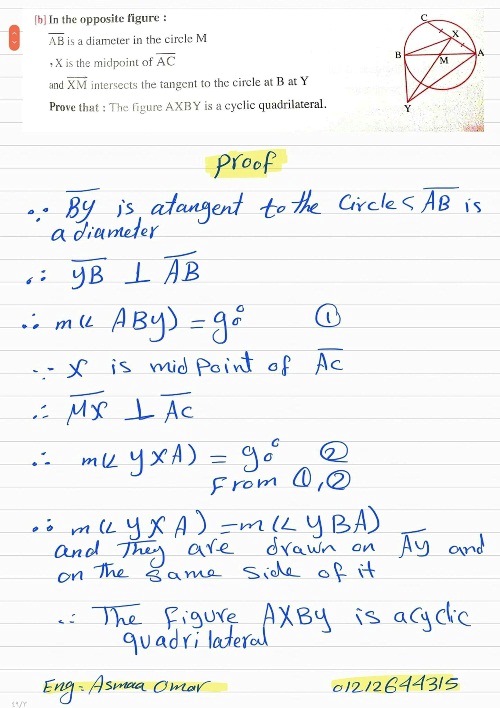 [b] In the opposite figure :
AB is a diameter in the circle M
, X is the midpoint of AC
and XM intersects the tangent to the circle at B at Y
Prove that : The figure AXBY is a cyclic quadrilateral.
C
X
B
M
A
Y
Proof
∵ BY is atangent to the Circle < AB is
a diameter
∴ YB ⊥ AB
∴ m(∠ ABY) = 90° ①
∵ X is mid Point of AC
∴ MX ⊥ AC
∴ m(∠ YXA) = 90° ②
From ①, ②
∴ m(∠ YXA) = m(∠ YBA)
and They are drawn on AY and
on the same side of it
∴ The Figure AXBY is acyclic
quadrilateral
Eng. Asmaa Omar 01212644315